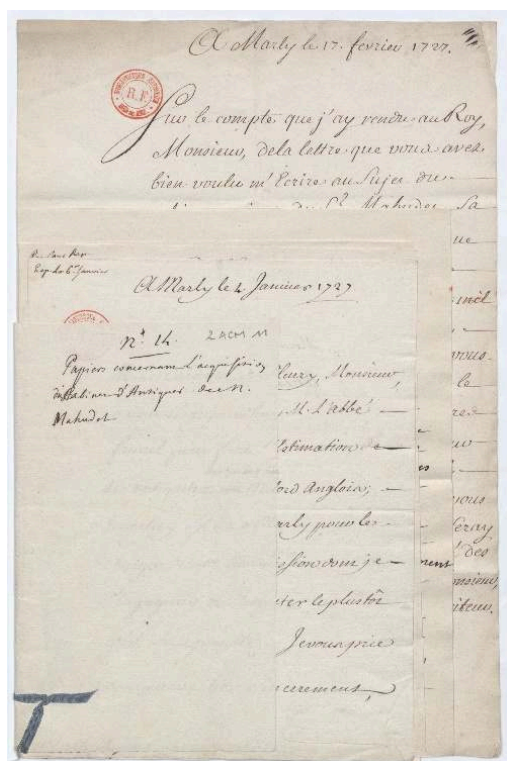 A Marly le 17. fevrier 1727.
Sur le compte que j'ay rendu au Roy,
Monsieur, de la lettre que vous avez
bien voulu m'Ecrire au Sujet du
Sr. Mahudel Sa
que
R.F.
A Marly le 4 Janvier 1727
n°. 14. 2 ACM 11
Papiers concernant l'acquisition
du Cabinet d'Antiques de M.
Mahudel
fleury, Monsieur,
M. L'Abbé
Estimation de
lord Anglois;
arly pour les
ission dont je
ter le plustôt
Je vous prie
cerement,
vous
le
res
vous
Seray
des
onsieur,
iteur.
ment